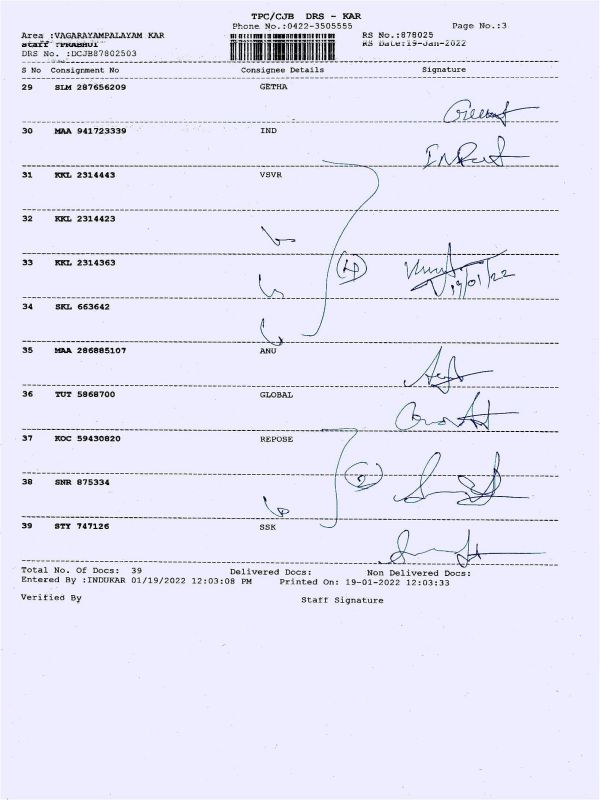 TPC/CJB DRS - KAR
Phone No.:0422-3505555 Page No.:3
Area :VAGARAYAMPALAYAM KAR RS No.:878025
Staff :PRABHU1 RS Date:19-Jan-2022
DRS No. :DCJB87802503
S No Consignment No Consignee Details Signature
29 SLM 287656209 GETHA
30 MAA 941723339 IND
31 KKL 2314443 VSVR
32 KKL 2314423
33 KKL 2314363 (4) 19/01/22
34 SKL 663642
35 MAA 286885107 ANU
36 TUT 5868700 GLOBAL
37 KOC 59430820 REPOSE
38 SNR 875334 (2)
39 STY 747126 SSK
Total No. Of Docs: 39 Delivered Docs: Non Delivered Docs:
Entered By :INDUKAR 01/19/2022 12:03:08 PM Printed On: 19-01-2022 12:03:33
Verified By Staff Signature